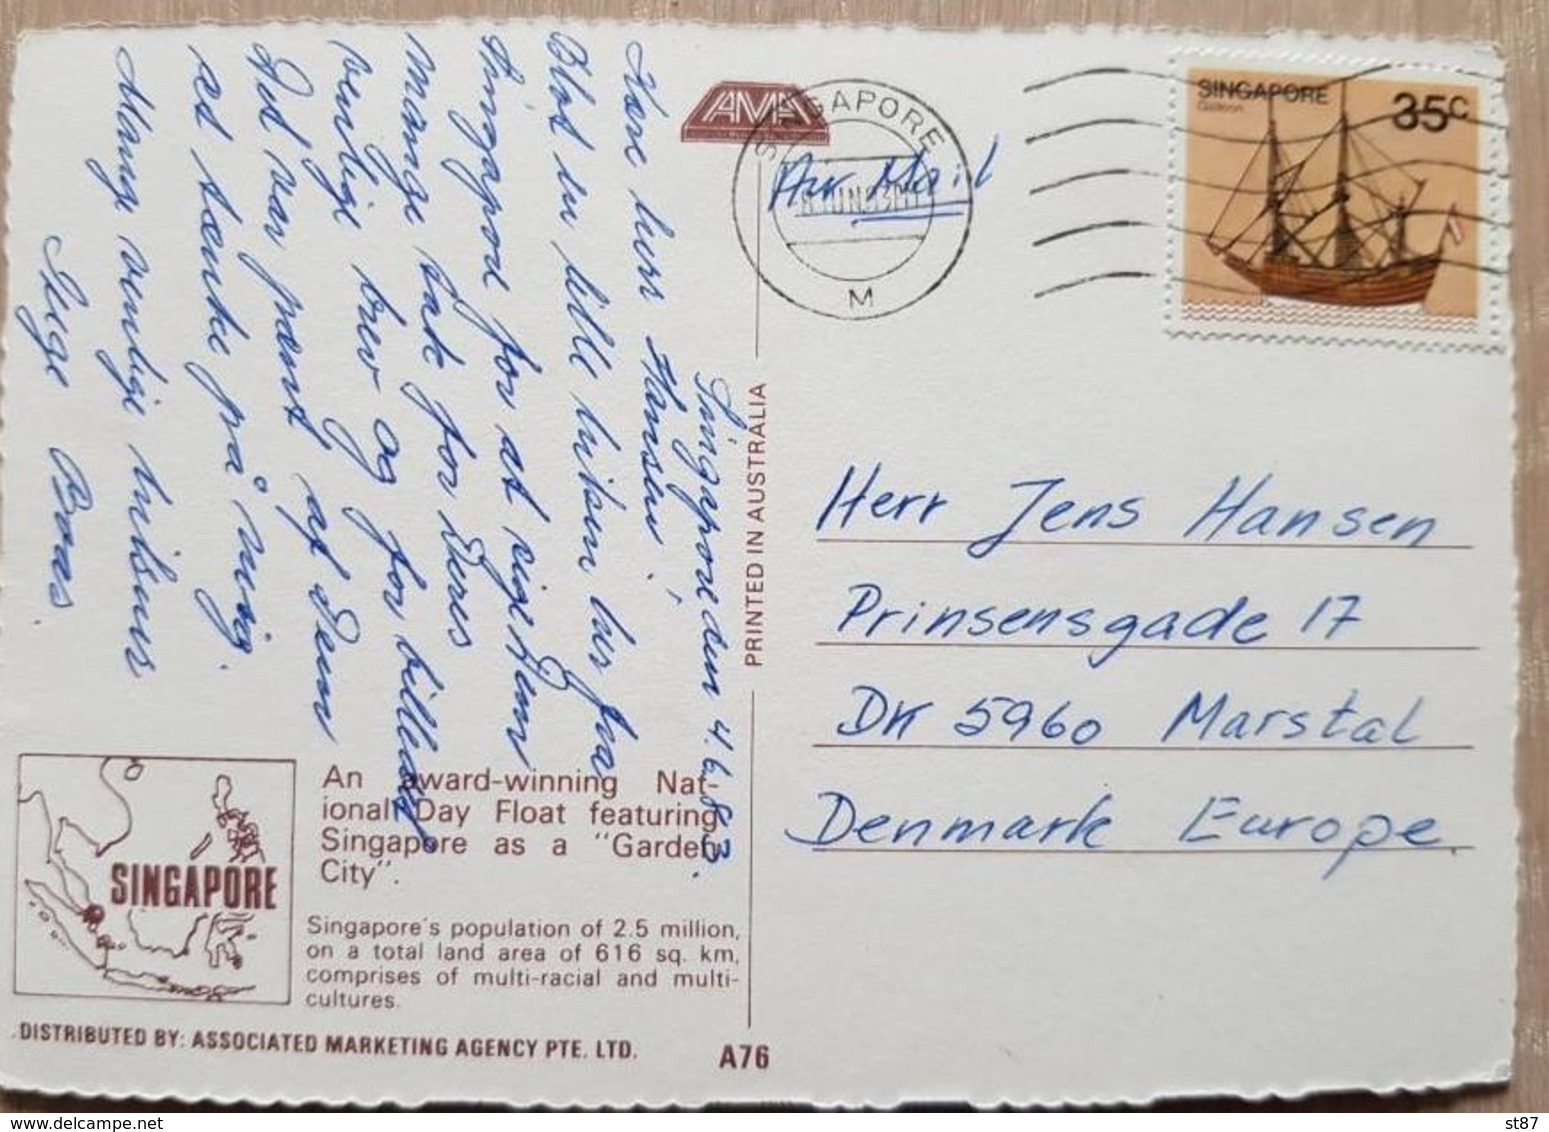 Singapore den 4.6.83.
Kære herr Hansen!
Blot en lille hilsen her fra
Singapod for at sige Dem
mange tak for Deres
venlige brev og for billedet
Det var pænt af Dem
at tænke på mig.
Mange venlige hilsner
Helge
AMA
SINGAPORE
M
Air Mail
SINGAPORE
Galleon
35c
Herr Jens Hansen
Prinsensgade 17
DK 5960 Marstal
Denmark Europe.
PRINTED IN AUSTRALIA
SINGAPORE
An award-winning Nat-
ional Day Float featuring
Singapore as a "Garden
City".
Singapore's population of 2.5 million,
on a total land area of 616 sq. km,
comprises of multi-racial and multi-
cultures.
DISTRIBUTED BY: ASSOCIATED MARKETING AGENCY PTE. LTD.
A76
www.delcampe.net
st87